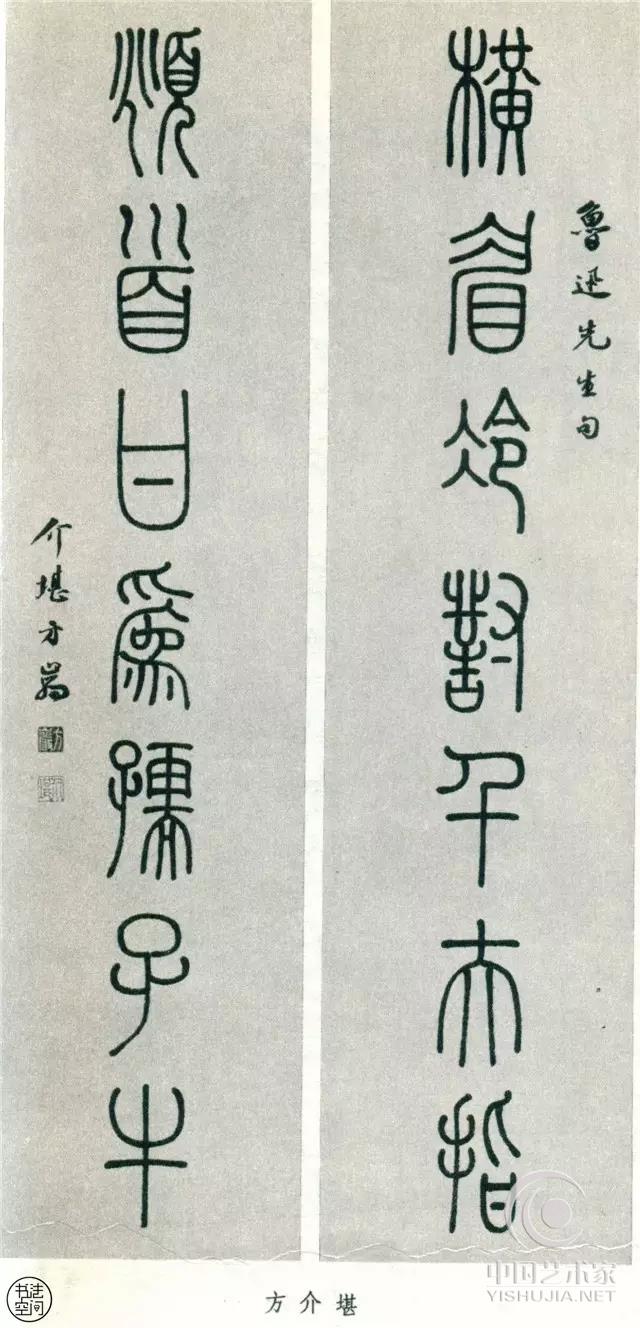 魯迅先生句
橫眉冷對千夫指
頫首甘為孺子牛
介堪方嵒
方介堪
书法
空间
中国艺术家
YISHUJIA.NET